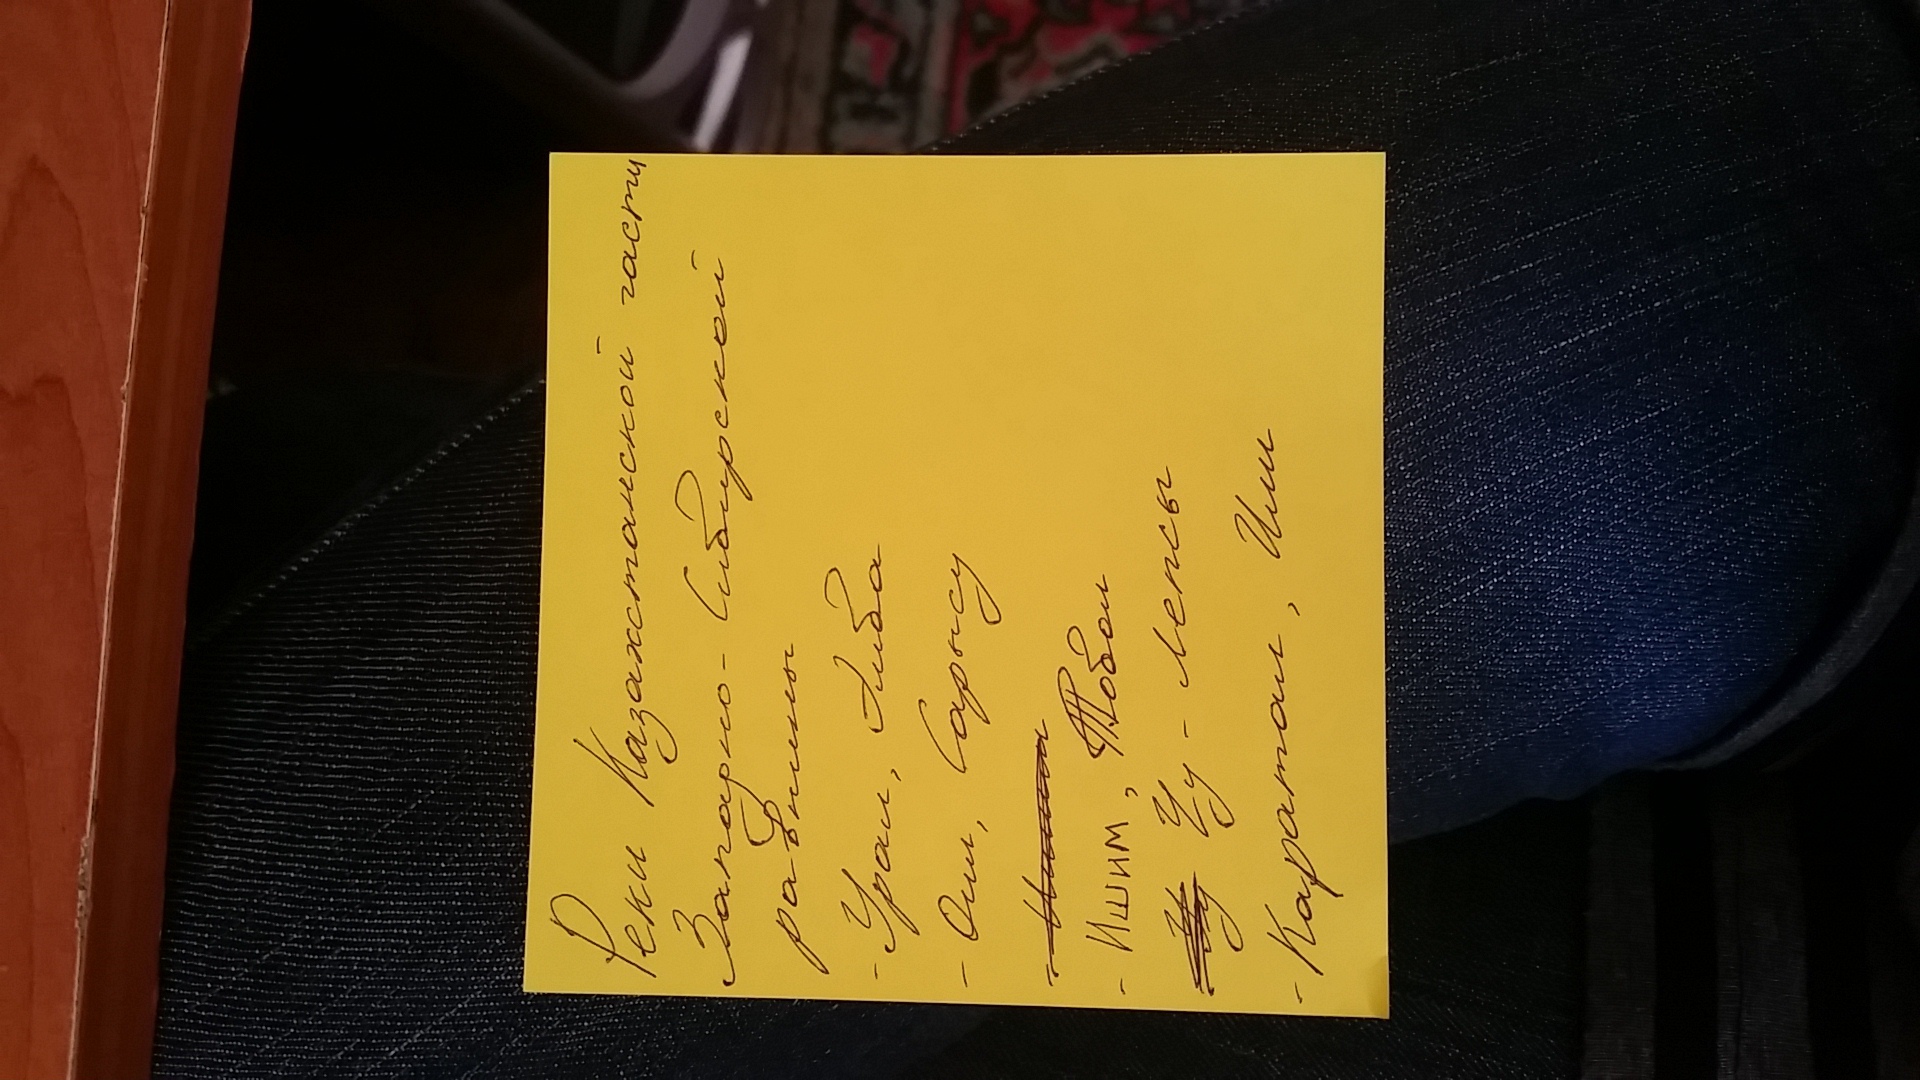 Реки Казахстанской части
Западно-Сибирской
равнины
- Урал, Эмба
- Оил, Сарысу
- Ишим, Тобол
Чу - Лепсы
- Каратал, Или